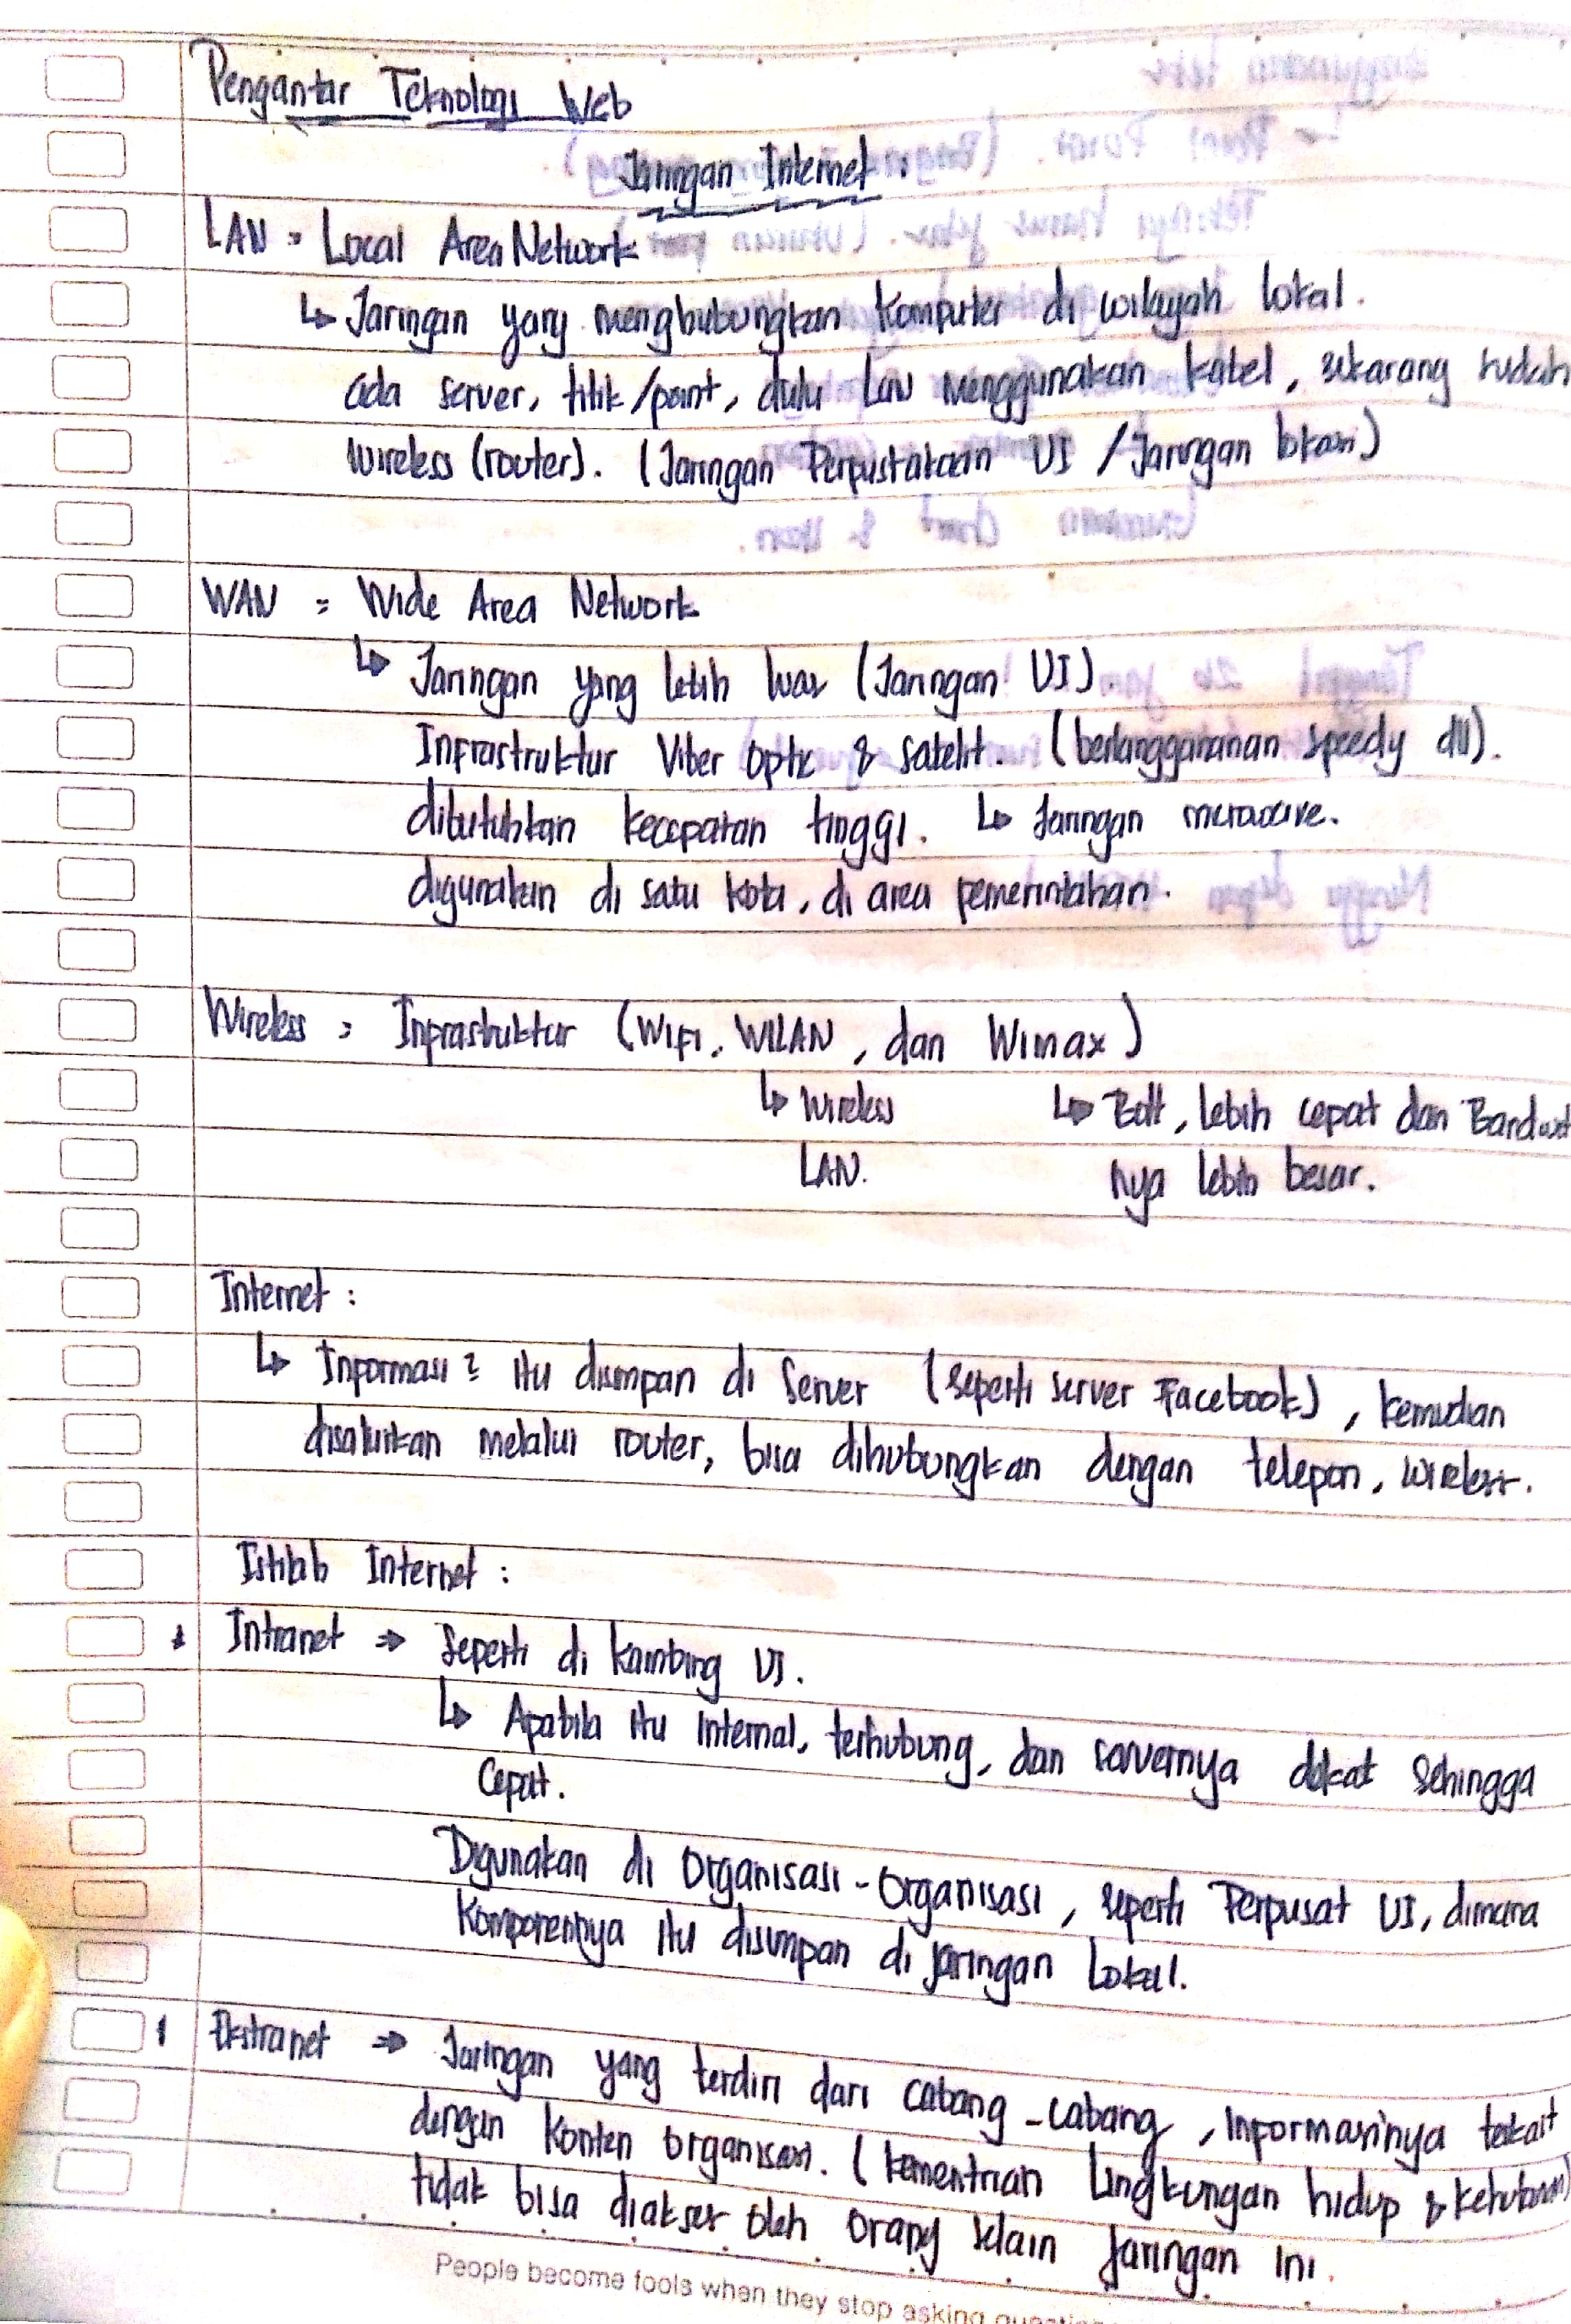 Pengantar Teknologi Web
Jaringan Internet.
LAN = Local Area Network
↳ Jaringan yang menghubungkan komputer di wilayah lokal.
ada server, titik/point, dulu LAN menggunakan kabel, sekarang sudah
wireless (router). (Jaringan Perpustakaan UI / Jaringan lokasi)
WAN = Wide Area Network
↳ Jaringan yang lebih luas (Jaringan UI).
Infrastruktur Viber optic & satelit. (berlangganan speedy dll).
dibutuhkan kecepatan tinggi. ↳ Jaringan microwave.
digunakan di satu kota, di area pemerintahan.
Wireless = Infrastuktur (WiFi, WILAN, dan Wimax)
↳ Wireless ↳ Bolt, lebih cepat dan Bandwit
LAN. nya lebih besar.
Internet :
↳ Informasi2 itu disimpan di Server (seperti server Facebook), kemudian
disalurkan melalui router, bisa dihubungkan dengan telepon, wireless.
Istilah Internet :
Intranet ⇒ Seperti di kambing UI.
↳ Apabila itu Internal, terhubung, dan servernya dekat sehingga
Cepat.
Digunakan di Organisasi-Organisasi, seperti Perpusat UI, dimana
Komponennya itu disimpan di jaringan Lokal.
Ekstranet ⇒ Jaringan yang terdiri dari cabang-cabang, Informasinya tekait
dengan konten organisasi. (kementrian Lingkungan hidup & kehutanan)
tidak bisa diakses oleh orang selain jaringan ini.
People become fools when they stop asking